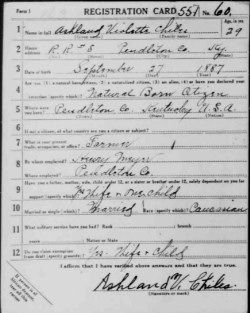 Form 1 REGISTRATION CARD 551 No. 60
1 Name in full Ashland Violette Chiles Age, in yrs. 29
(Given name) (Family name)
2 Home address R. R. # 5 Pendleton Co. Ky.
3 Date of birth September 27 1887
(Month) (Day) (Year)
4 Are you (1) a natural-born citizen, (2) a naturalized citizen, (3) an alien, (4) or have you declared your intention (specify which)?
Natural Born Citizen
5 Where were you born? Pendleton Co. Kentucky U.S.A.
(Town) (State) (Nation)
6 If not a citizen, of what country are you a citizen or subject?
7 What is your present trade, occupation, or office? Farmer
8 By whom employed? Henry Meyer
Where employed? Pendleton Co.
9 Have you a father, mother, wife, child under 12, or a sister or brother under 12, solely dependent on you for support (specify which)?
Wife & One child
10 Married or single (which)? Married Race (specify which)? Caucasian
11 What military service have you had? Rank branch
years Nation or State
12 Do you claim exemption from draft (specify grounds)? Yes. Wife & Child
I affirm that I have verified above answers and that they are true.
Ashland V. Chiles
(Signature or mark)